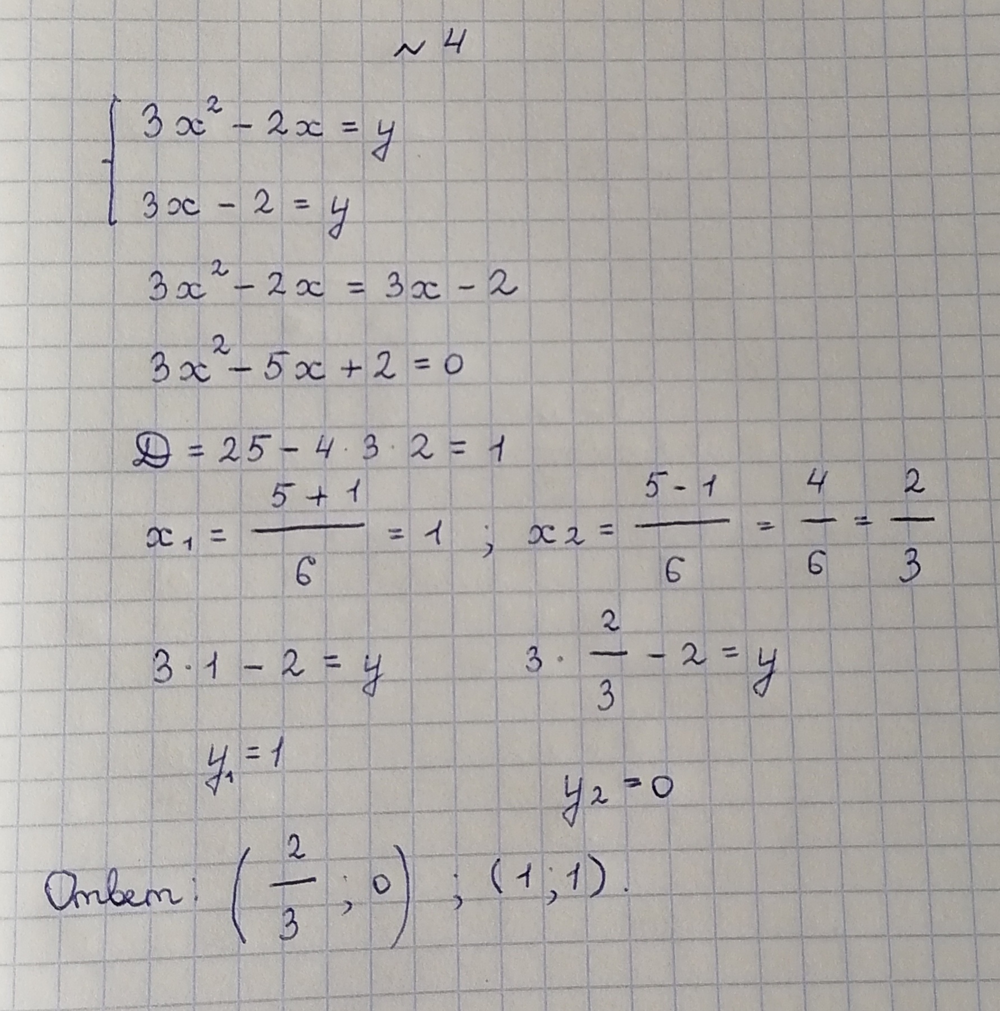 ~ 4
3x² - 2x = y
3x - 2 = y
3x² - 2x = 3x - 2
3x² - 5x + 2 = 0
D = 25 - 4 · 3 · 2 = 1
x₁ = (5 + 1)/6 = 1 ; x₂ = (5 - 1)/6 = 4/6 = 2/3
3 · 1 - 2 = y 3 · 2/3 - 2 = y
y₁ = 1
y₂ = 0
Ответ: (2/3 ; 0) ; (1 ; 1).